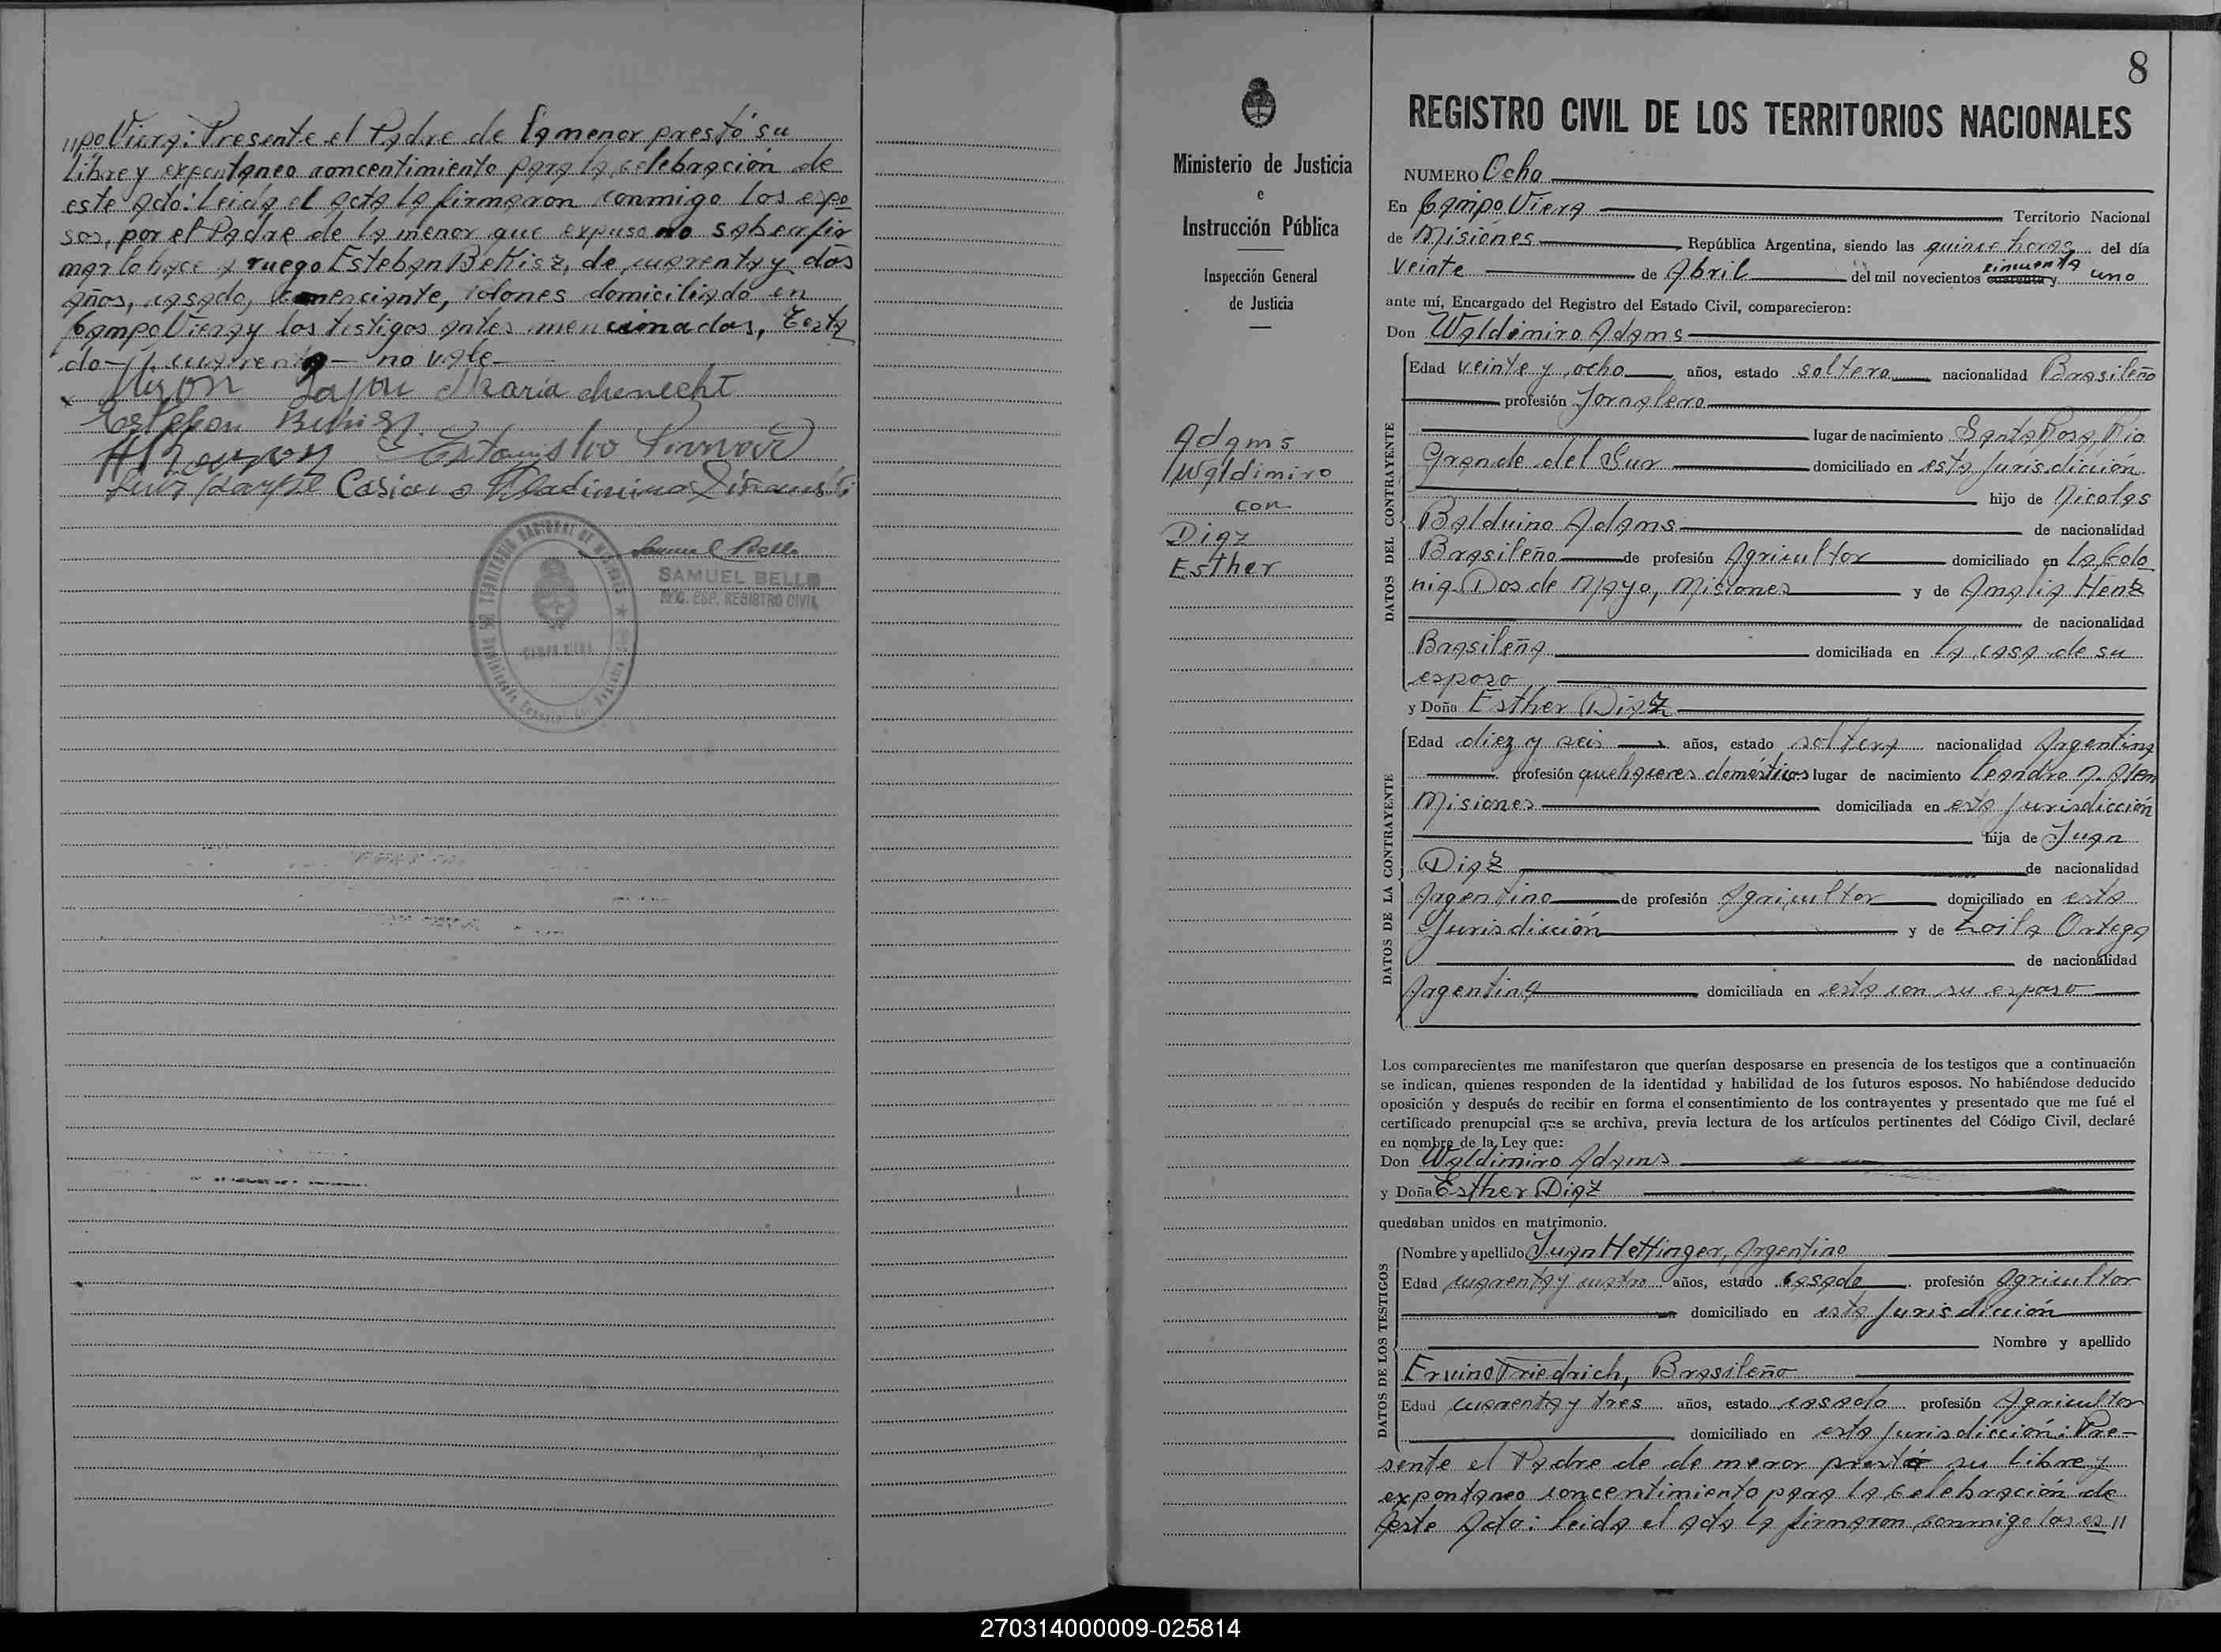 "poViera: Presente el Padre de la menor prestó su
libre y expontaneo concentimiento para la celebración de
este acto: leida el acta la firmaron conmigo los espo
sos, por el Padre de la menor que expuso no saber fir
mar lo hace a ruego Esteban Bekisz, de cuarenta y dos
años, casado, comerciante, domiciliado en
Campo Viera y los testigos antes mencionados, Testa
do - cuarenta - no vale
Maria
Estanislao
Casiano
Samuel Bello
SAMUEL BELLO
ENC. ESP. REGISTRO CIVIL
CAMPO VIERA
Adams
Waldimiro
con
Diaz
Esther
Ministerio de Justicia
e
Instrucción Pública
Inspección General
de Justicia
8
REGISTRO CIVIL DE LOS TERRITORIOS NACIONALES
NUMERO Ocho
En Campo Viera Territorio Nacional
de Misiones República Argentina, siendo las quince horas del día
veinte de Abril del mil novecientos cincuenta cuarenta y uno
ante mí, Encargado del Registro del Estado Civil, comparecieron:
Don Waldimiro Adams
DATOS DEL CONTRAYENTE
Edad veinte y ocho años, estado soltero nacionalidad Brasileño
profesión Jornalero
lugar de nacimiento Santa Rosa, Rio
Grande del Sur domiciliado en esta Jurisdicción
hijo de Nicolas
Balduino Adams de nacionalidad
Brasileño de profesión Agricultor domiciliado en la Colo
nia Dos de Mayo, Misiones y de Amalia Henz
de nacionalidad
Brasileña domiciliada en la casa de su
esposo
y Doña Esther Diaz
DATOS DE LA CONTRAYENTE
Edad diez y seis años, estado soltera nacionalidad Argentina
profesión quehaceres domésticos lugar de nacimiento Leandro N. Alem
Misiones domiciliada en esta Jurisdicción
hija de Juan
Diaz de nacionalidad
Argentino de profesión Agricultor domiciliado en esta
Jurisdicción y de Zoila Ortega
de nacionalidad
Argentina domiciliada en esta con su esposo
Los comparecientes me manifestaron que querían desposarse en presencia de los testigos que a continuación
se indican, quienes responden de la identidad y habilidad de los futuros esposos. No habiéndose deducido
oposición y después de recibir en forma el consentimiento de los contrayentes y presentado que me fué el
certificado prenupcial que se archiva, previa lectura de los artículos pertinentes del Código Civil, declaré
en nombre de la Ley que:
Don Waldimiro Adams
y Doña Esther Diaz
quedaban unidos en matrimonio.
DATOS DE LOS TESTIGOS
Nombre y apellido Juan Hettinger, Argentino
Edad cuarenta y cuatro años, estado casado profesión Agricultor
domiciliado en esta Jurisdicción
Nombre y apellido
Ervino Friedrich, Brasileño
Edad cuarenta y tres años, estado casado profesión Agricultor
domiciliado en esta Jurisdicción: Pre-
sente el Padre de de menor prestó su libre y
expontaneo concentimiento para la celebración de
este Acto: leida el acta la firmaron conmigo los es "
270314000009-025814